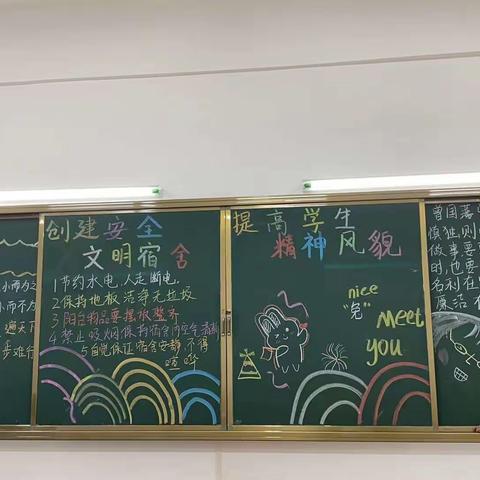 小而为之
小而不为
遍天下
步难行
创建安全
文明宿舍
1 节约水电,人走断电.
2 保持地板洁净无垃圾
3 阳台物品要摆放整齐
4 禁止吸烟保持宿舍内安全清新
5 自觉保证宿舍安静,不得
喧哗
提高学生
精神风貌
nice
"兔"
Meet
you
曾国藩
慎独,则
做事要
时,也要
名利在
廉洁